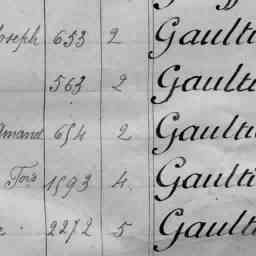 oseph 653 2 Gaulti
563 2 Gaulti
Amand 654 2 Gaulti
Fois 1593 4. Gaulti
2272 5 Gaulti